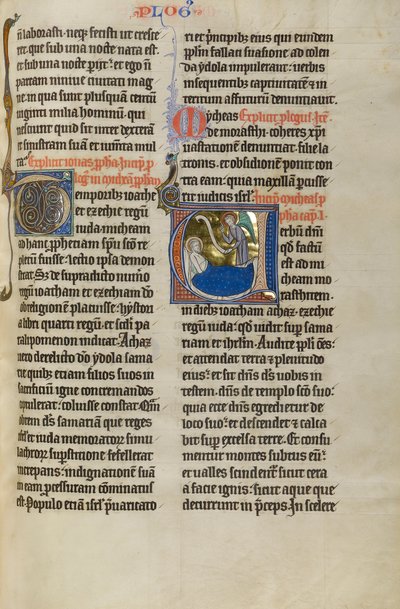 PLOG9
n̄ laborasti· neq; fecisti ut cresce
ret· que sub una nocte nata est·
et sub una nocte perijt· et ego n̄
parcam niniue ciuitati mag
ne· in qua sunt plusquam centū
uiginti milia hominum· qui
nesciunt quid sit inter dexterā
et sinistram suā· et iumenta mul
ta· Explicit ionas ꝓpha· Incipit ꝓ
logus in micheam ꝓpham
Temporibus ioathe
et ezechie regū
iuda· micheam
ad hanc ꝓphetiam spm̄ sc̄o re
pletum fuisse· lectio ip̄a demon
strat· Sz de supradicto nūio
regū ioatham et ezechiam dō
ob religionem placuisse· hyston
a libri quarti regū· et scd̓i pa
ralipomenon indicat· Achaz
uero derelicto dō ydola sama
rie quibz etiam filios suos in
sacrificiū igne concremandos
optulerat· coluisse constat· Qm̄
ob rem dn̄s samariā que reges
isrl̓ et iuda memoratos simu
lachrorz suꝑstitione fefellerat
increpans· indignationē suā
in eam ꝓcessuram cōminatus
est· Populo etiā isrl̓ p̄uaricato
ri et principibz eius qui eundem
ppl̓m fallaci suasione ad colen
da ydola impulerant· uerbis
insequentibz captiuitatē et in
teritum affuturū denunciauit·
Mycheas Explicit plogus· Item
de morasthi· coheres xp̄i
uastationē denunciat· filie la
tronis· et obsidionem ponit con
tra eam· quia maxillā ꝑcusse
rit iudicis isrl̓· Incipit micheas ꝓ
pha cap· I·
Uerbū dn̄i
qd̓ factū
est ad mi
cheam mo
rasthitem·
in diebz ioatham achaz· ezechie
regū iuda· qd̓ uidit suꝑ sama
riam et ihrlm̄· Audite ppl̓i om̄s·
et attendat terra et plenitudo
eius· et sit dn̄s ds̄ uobis in
testem· dn̄s de templo sc̄o suo·
quia ecce dn̄s egredietur de
loco suo· et descendet et calca
bit suꝑ excelsa terre· Et consu
mentur montes subtus eū·
et ualles scindent̄ sicut cera
a facie ignis· sicut aque que
decurrunt in p̄ceps· In scelere